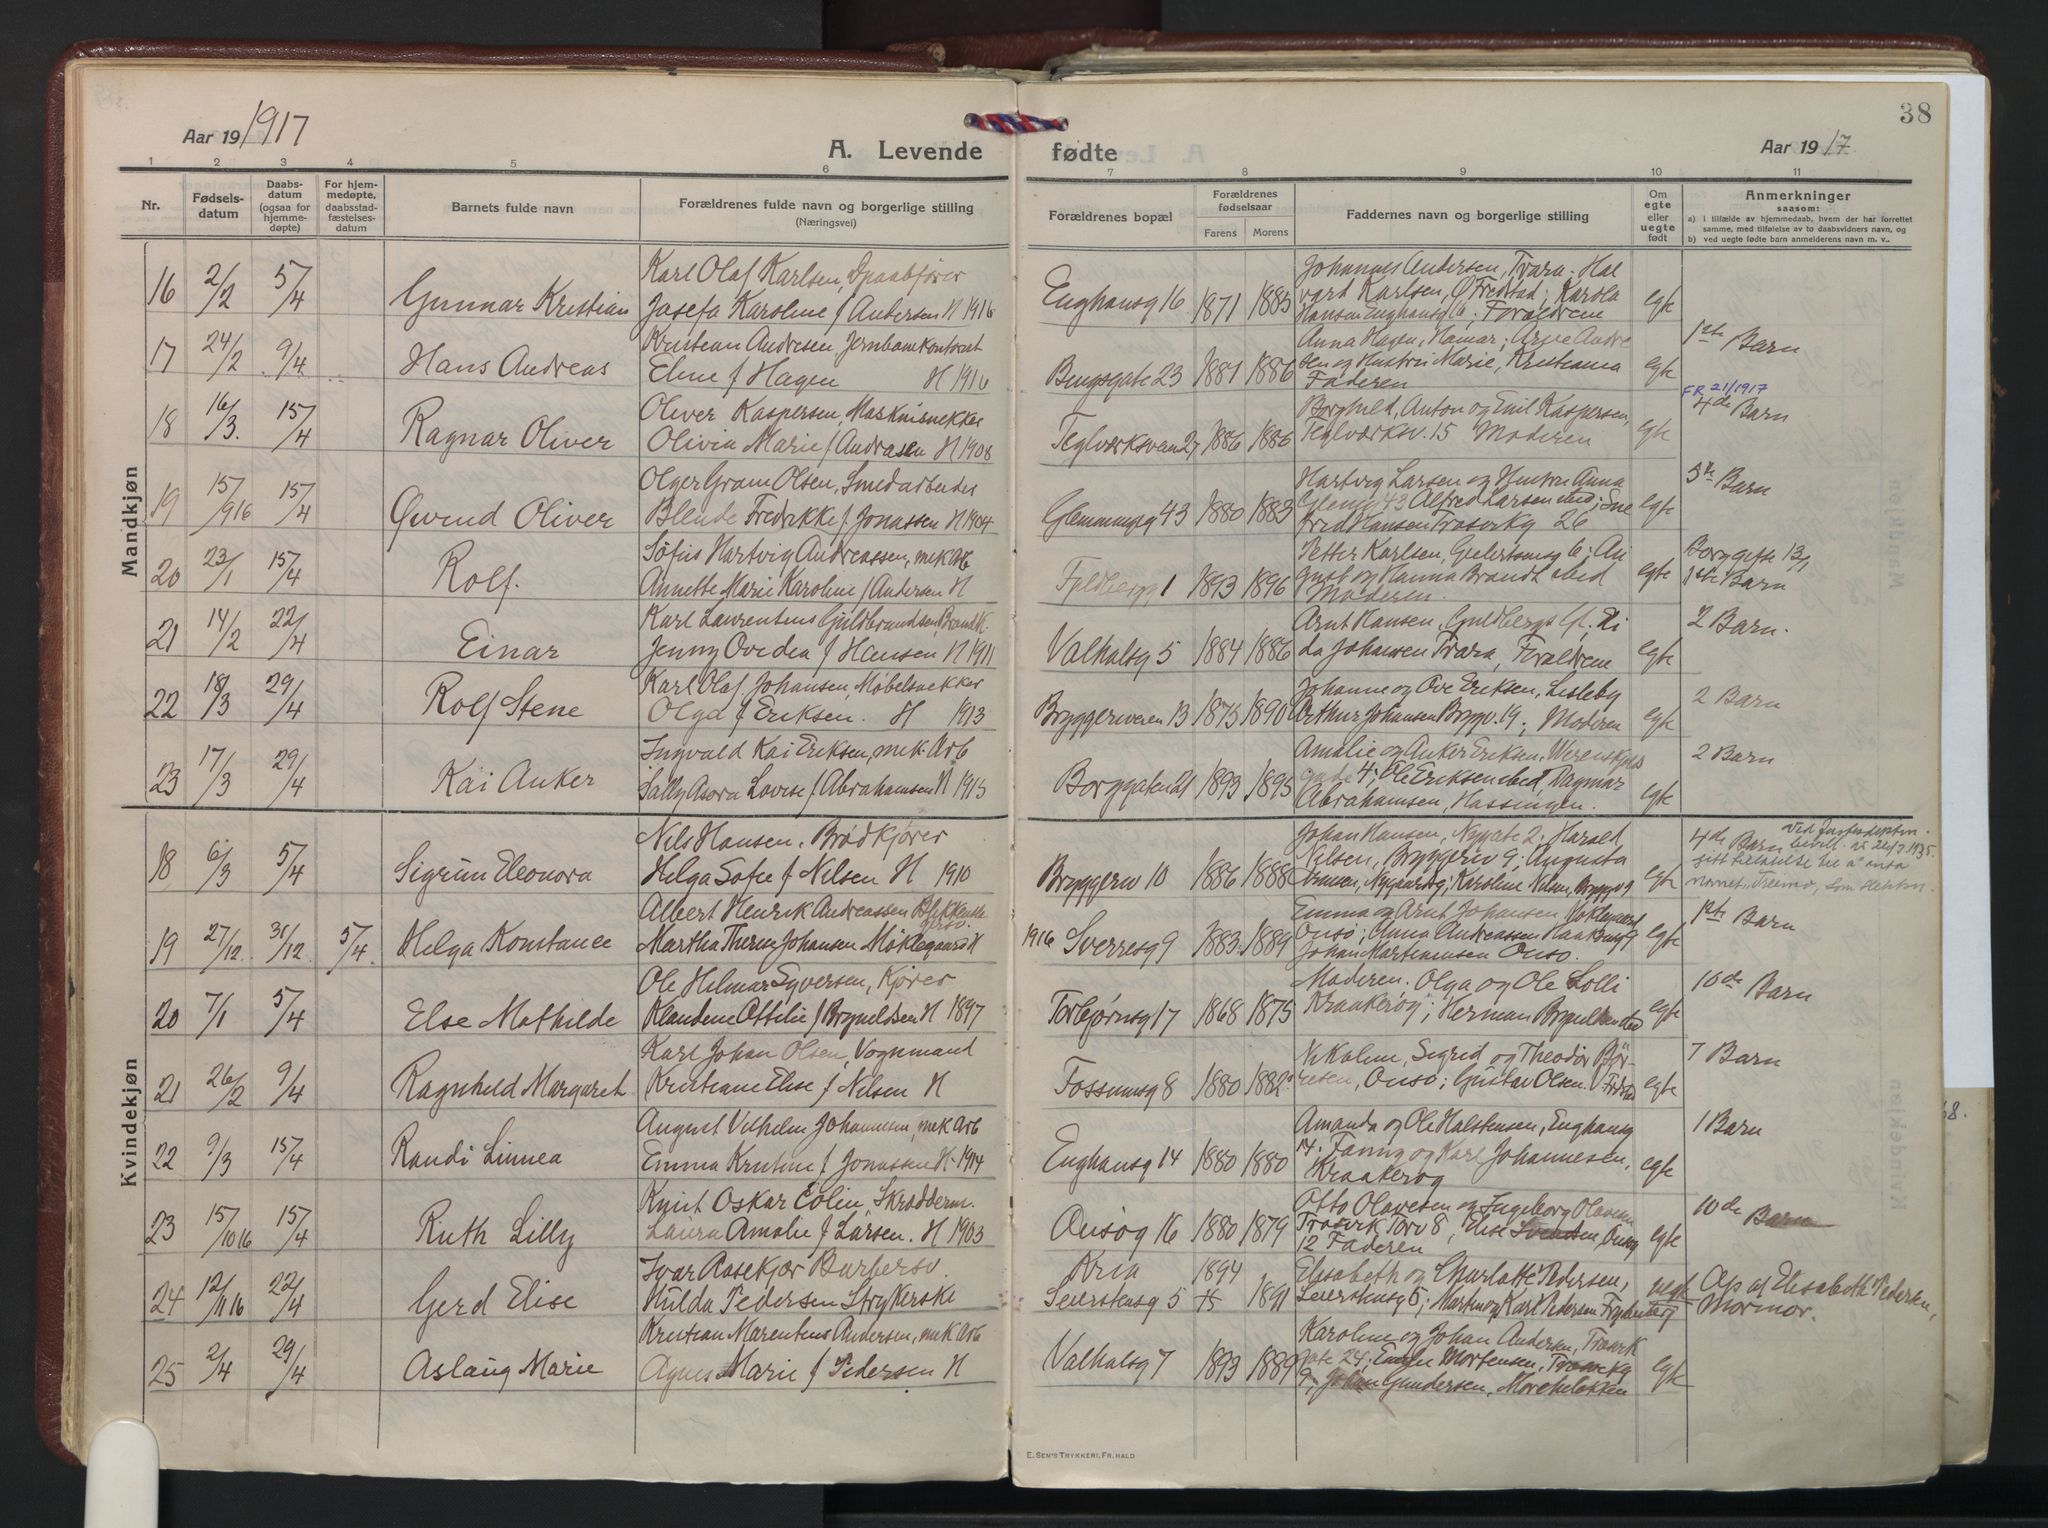 Aar 19 1917
A. Levende
1 2 3 4 5 6
Nr.
Fødsels-
datum
Daabs-
datum
(ogsaa for
hjemme-
døpte)
For hjem-
medøpte,
daabsstad-
fæstelses-
datum
Barnets fulde navn
Forældrenes fulde navn og borgerlige stilling
(Næringsvei)
Mandkjøn
16 2/2 5/4 Gunnar Kristian
Karl Olaf Karlsen,
Josefa Karoline f Andersen H 1916
17 24/2 9/4 Hans Andreas
Kristian Andresen, Jernbanekontorist
Eline f Hagen H 1916
18 16/3. 15/4 Ragnar Oliver
Oliver Kaspersen, Maskinsnekker
Olivia Marie f Andrasen H 1908
19 15/9 16 15/4 Øivend Oliver
Olger Gram Olsen, Smedarbeider
Blende Fredrikke f Jonassen H 1904
20 23/1 15/4 Rolf.
Sofus Hartvig Andreassen, mek Arb
Annette Marie Karoline f Andersen H
21 14/2 22/4 Einar
Karl Laurentius Guldbrandsen,
Jenny Ovedea f Hansen H 1911
22 18/3 29/4 Rolf Stene
Karl Olaf Johansen, Møbelsnekker
Olga f Eriksen. H 1913
23 17/3 29/4 Kai Anker
Ingvald Kai Eriksen, mek. Arb
Sally Asora Lovise f Abrahamsen H 1915
Kvindekjøn
18 6/3 5/4 Sigrun Eleonora
Nils Hansen, Brødkjører
Helga Sofie f Nilsen H 1910
19 27/12. 31/12. 5/4. Helga Konstance
Albert Henrik Andreassen
Martha Johansen Møklegaard H
20 7/1 5/4 Else Mathilde
Ole Hilmar Syversen, Kjører
Klaudine Ottilie f Brynildsen H 1897
21 26/2 9/4 Ragnhild Margaret
Karl Johan Olsen, Vognmand
Kristiane Elise f Nilsen H
22 9/3 15/4 Randi Linnea
August Vilhelm Johannesen, mek Arb
Emma Kristine f Jonassen H. 1914
23 15/10 16 15/4 Ruth Lilly
Knut Oskar Eolin, Skrædderm.
Laura Amalie f Larsen. H 1903
24 12/11 16 22/4 Gerd Elise
Ivar Aasekjær Barbersv.
Hulda Pedersen Strykerske
25 2/4 29/4 Aslaug Marie
Kristian Marentius Andersen, mek Arb
Agnes Marie f Pedersen H
38
fødte
Aar 19 17.
7 8 9 10 11
Forældrenes bopæl
Forældrenes
fødselsaar
Farens Morens
Faddernes navn og borgerlige stilling
Om
egte
eller
uegte
født
Anmerkninger
saasom:
a) i tilfælde av hjemmedaab, hvem der har forrettet
samme, med tilføielse av to daabsvidners navn, og
b) ved uegte fødte barn anmelderens navn m. v..
Johannes Andersen, Trara. Hal
Enghausg 16 1871 1885 vard Karlsen, Ø Fredstad; Karola egte
Hansen Enghausg 6; Forældrene
Anna Hagen, Hamar; Arne Andre
Bingsgate 23 1881 1886 sen og Hustru Marie, Kristiania egte 1ste Barn
Faderen
FR 21/1917
Borghild, Anton og Emil Kaspersen, 4de Barn
Teglværksveien 27 1886 1886 Teglværksv. 15 Moderen egte
Hartvig Larsen og Hustru Anna 5te Barn
Glemmingg 43 1880 1883 Glemg 43 Alfred Larsen ibid; Sne egte
frid Hansen Trosvikg 26
Petter Karlsen, Geelertsensg 6; Au
Fjeldbergg 1 1893 1896 gust og Hanna Brandt ibid egte 1ste Barn
Moderen.
Arnt Hansen, Guldbergs Gt. Hi 2 Barn.
Valhalsg 5 1884 1886 da Johansen Trara, Forældrene egte
Johanne og Ove Eriksen, Lisleby 2 Barn
Bryggeriveien 13 1875 1890 Arthur Johansen Bryggv. 19; Moderen egte
Amalie og Anker Eriksen, Werenskjolds 2 Barn
Borggaten 21 1893 1895 gade 4; Ole Eriksen ibid, Dagmar egte
Abrahamsen, Hassingen.
Johan Hansen, Nygate 2. Harald 4de Barn
Bryggeriv 10 1886 1888 Nilsen, Bryggeriv 9; Augusta egte
Nygaardsg; Karoline Nilsen, Bryggv 9
Emma og Arnt Johansen 1ste Barn
1916 Sverresg 9 1883. 1889 Onsø; Anna Andreassen Haakonsg 9 egte
Johan Martiniussen Onsø.
Moderen. Olga og Ole Lolli 10de Barn
Torbjørnsg 17 1868 1875 Kraakerøy; Herman Brynildsen ibid egte
Nikoline, Sigrid og Theodor Bjør- 7 Barn
Fossumsg 8 1880 1882 Onsø; Gustav Olsen. egte
Amanda og Ole Halstensen, Enghausg 1 Barn
Enghausg 14 1880 1880 14. Fanny og Karl Johannesen, egte
Kraakerøy
Otto Olavesen og Ingeborg Olavesen 10de Barn
Onsøg 16 1880 1879 Trosvik Torv 8, Else Onsøg egte
12 Faderen
Kria 1894 Elisabeth og Charlotte Pedersen, uegt Op af Elisabeth Pedersen,
Seierstensg 5 1891 Seierstensg 5; Martin og Karl Pedersen Mormor.
Karoline og Johan Andersen,
Valhalsg 7 1893 1889 gate 24; Mortensen, egte
9; Johan Gundersen,
E. SEN'S TRYKKERI, FR. HALD